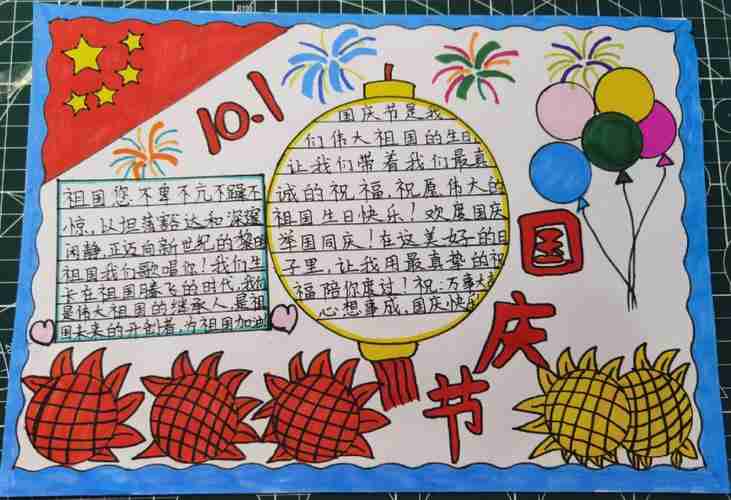 10.1
祖国您不卑不亢不躁不
惊,以坦荡豁达和深邃
闲静,正迈向新世纪的黎明
祖国我们歌唱你!我们生
长在祖国腾飞的时代,我们
是伟大祖国的继承人,是祖
国未来的开创者,为祖国加油
国庆节是我
们伟大祖国的生日
让我们带着我们最真
诚的祝福,祝愿伟大的
祖国生日快乐!欢度国庆
举国同庆!在这美好的日
子里,让我用最真挚的祝
福陪你度过!祝:万事大吉
心想事成,国庆快乐
国庆节